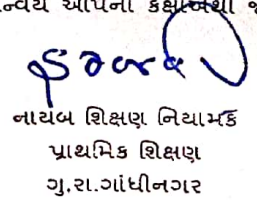 આપના કક્ષાએથી
નાયબ શિક્ષણ નિયામક
પ્રાથમિક શિક્ષણ
ગુ.રા.ગાંધીનગર